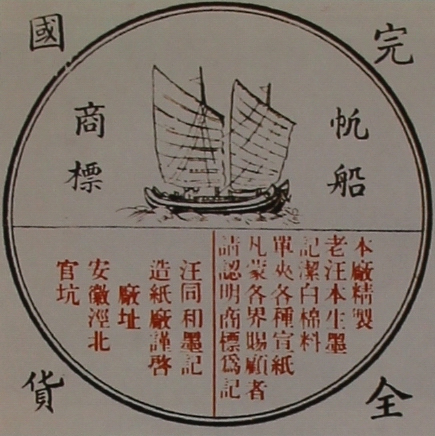 完全
國貨
帆船
商標
本廠精製
老汪本生墨
記潔白棉料
單夾各種宣紙
凡蒙各界賜顧者
請認明商標爲記
汪同和墨記
造紙廠謹啓
廠址
安徽涇北
官坑